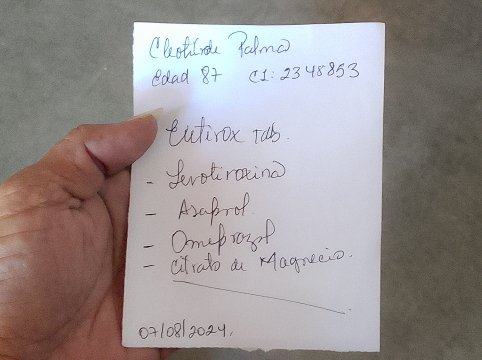 Cleotilde Palma
Edad 87 CI: 2348853
Eutirox TAB.
- Levotiroxina
- Asaprol.
- Omeprazol
- Citrato de Magnecio.
07/08/2024.